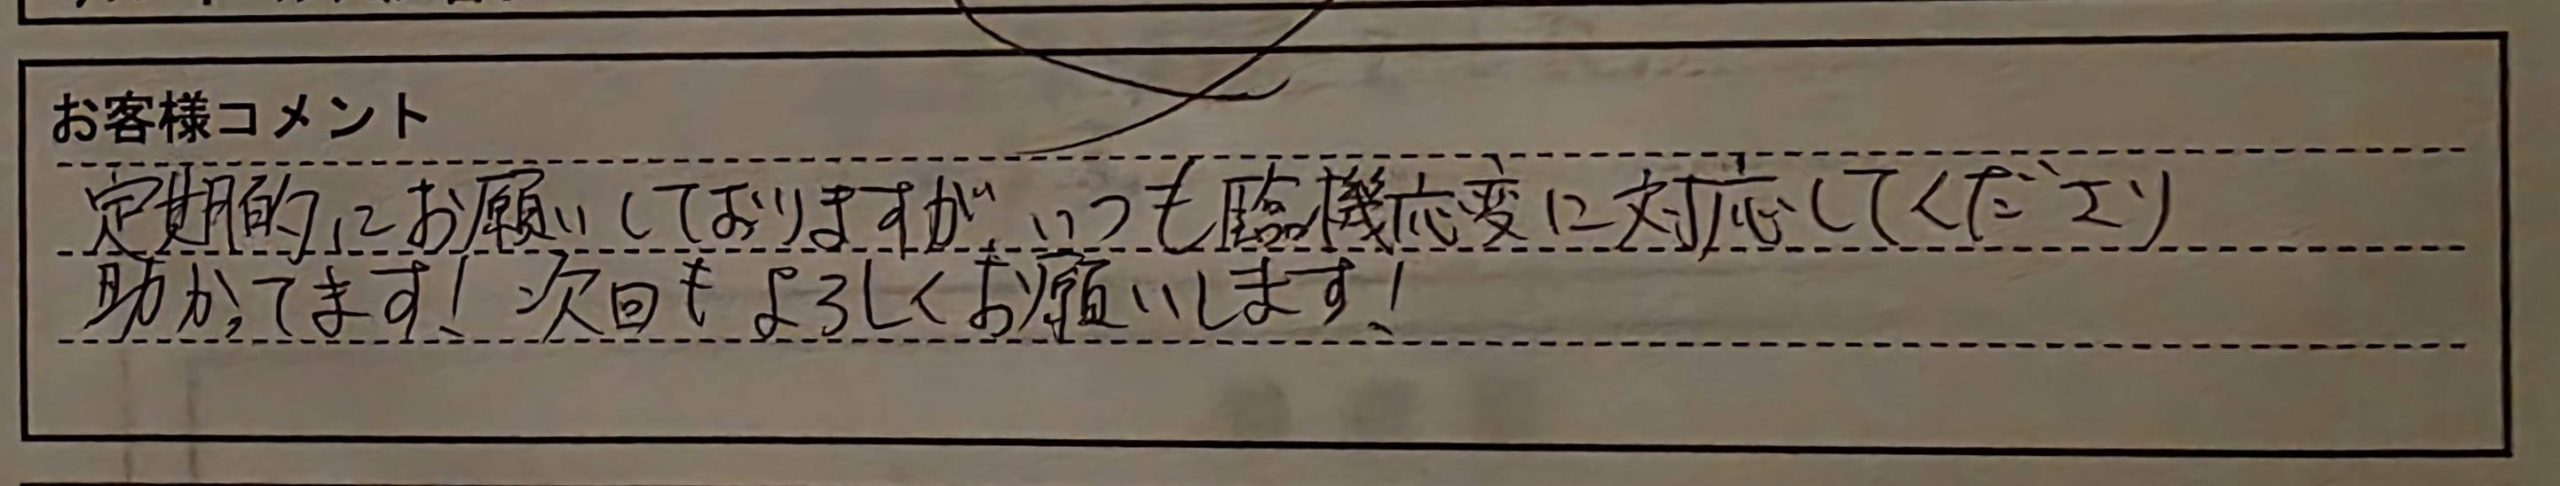 お客様コメント
定期的にお願いしておりますが、いつも臨機応変に対応してくださり
助かってます！次回もよろしくお願いします！